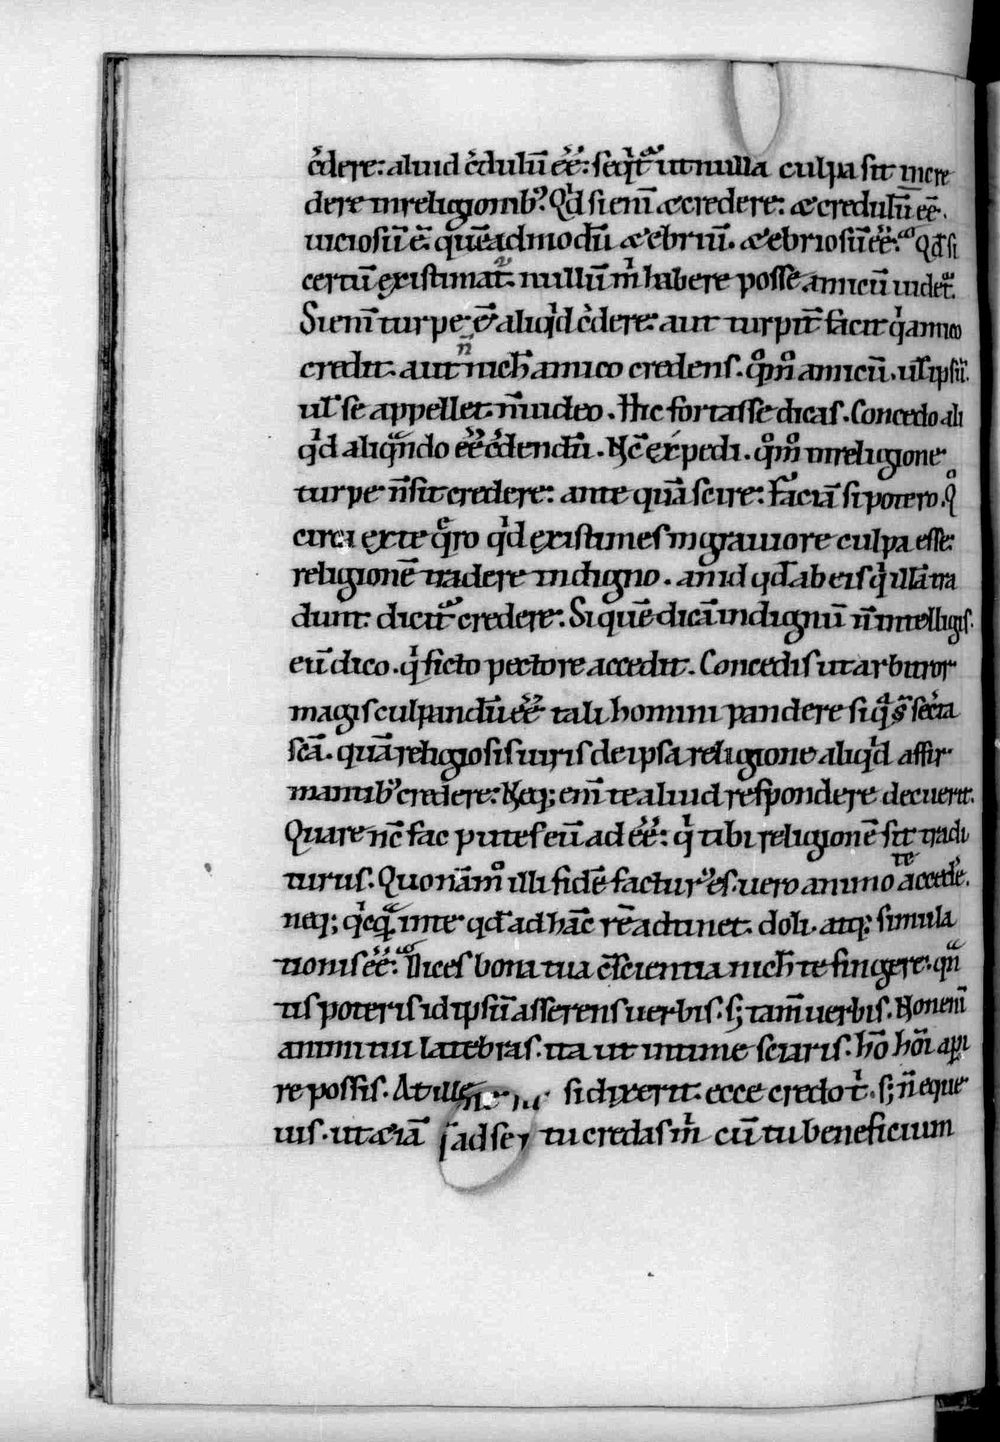 c̓dere: aliud c̓dulū ēē: seq̓t᷑ ut nulla culpa sit in cre
dere in religionib;? Qd̓ si enī & credere: & credulū eē.
uiciosū ē. quēadmodū & ebriū. & ebriosū ēē: Qd̄ si
certū existimat᷑. nullū m̓ habere posse amicū uidet᷑.
Si enī turpe ē aliq̓d c̓dere: aut turpit̄ facit q̓ amico
credit. aut n̄ nich̄ amico credens. q̊m̊ amicū. ul̄ ipsū.
ul̄ se appellet n̄ uideo. Hic fortasse dicas. Concedo ali
q̓d aliqn̄do ēē c̓dendū. Nc̄ expedi. q̊m̊ in religione
turpe n̄ sit credere: ante quā scire: Faciā si potero. Q̊
circa ex te q̄ro q̓d existimes in grauiore culpa esse:
religionē tradere indigno. an id qd̄ ab eis q̓ illā tra
dunt dicit᷑ credere: Si quē dicā indignū n̄ intelligis.
eū dico. q̓ ficto pectore accedit. Concedis ut arbitror
magis culpandū ēē tali homini pandere si q̄ s̄ secr̄a
scā. quā religiosis uiris de ipsa religione aliq̓d affir
mantib; credere: Neq; enī te aliud respondere decuerit.
Quare nc̄ fac putes eū adēē: q̓ tibi religionē sit tradi
turus. Quonā m̊ illi fidē factur̓ es. uero animo te accede̓.
neq; q̓cq̄ in te qd̄ ad hāc rē adtinet. doli. atq; simula
tionis ēē: Dices bona tua c̄scientia nich̄ te fingere. qn̄
tis poteris id ipsū asserens uerbis. s; tam̄ uerbis. Non enī
animi tui latebras. ita ut intime sciaris. hō hōi api
re possis. At ille si dixerit. ecce credo t̓. s; n̄ eque
uis. ut & iā tu credas m̓ cū tu beneficium